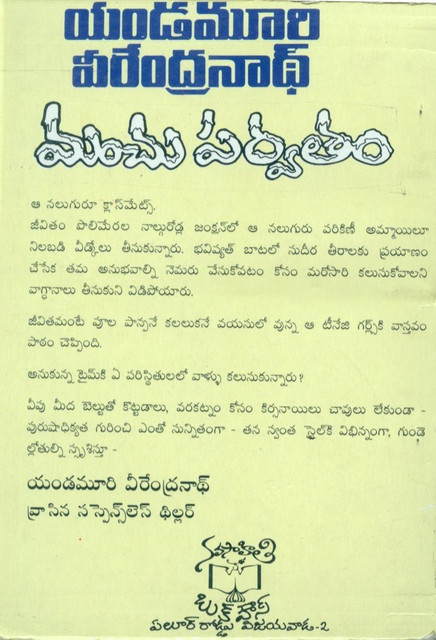 యండమూరి
వీరేంద్రనాథ్
మంచు పర్వతం
ఆ నలుగురూ క్లాస్‌మేట్స్.
జీవితం పొలిమేరల నాల్గురోడ్ల జంక్షన్‌లో ఆ నలుగురు పరికిణీ అమ్మాయిలూ
నిలబడి వీడ్కోలు తీసుకున్నారు. భవిష్యత్ బాటలో సుదీర తీరాలకు ప్రయాణం
చేసేక తమ అనుభవాల్ని నెమరు వేసుకోవటం కోసం మరోసారి కలుసుకోవాలని
వాగ్దానాలు తీసుకుని విడిపోయారు.
జీవితమంటే పూల పాన్పనే కలలుకనే వయసులో వున్న ఆ టీనేజి గర్ల్స్‌కి వాస్తవం
పాఠం చెప్పింది.
అనుకున్న టైమ్‌కి ఏ పరిస్థితులలో వాళ్ళు కలుసుకున్నారు?
వీపు మీద బెల్టుతో కొట్టడాలు, వరకట్నం కోసం కిర్సనాయిలు చావులు లేకుండా -
పురుషాధిక్యత గురించి ఎంతో సున్నితంగా - తన స్వంత స్టైల్‌కి విభిన్నంగా, గుండె
ల్లోతుల్ని స్పృశిస్తూ -
యండమూరి వీరేంద్రనాథ్
వ్రాసిన సస్పెన్స్‌లెస్ థ్రిల్లర్
నవసాహితి
బుక్ హౌస్
ఏలూర్ రోడ్డు విజయవాడ-2